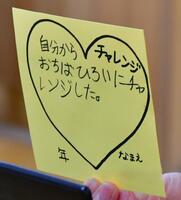 チャレンジ
自分から
おちばひろいにチャ
レンジした。
年 なまえ